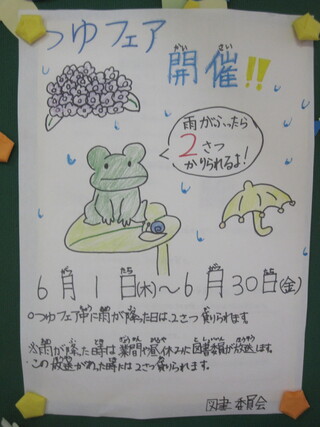 つゆフェア
開催!!
雨がふったら
2さつ
かりられるよ!
6月1日(木)～6月30日(金)
○つゆフェア中に雨が降った日は、2さつ借りられます。
※雨が降った時は業間や昼休みに図書委員が放送します。
この放送があった時には2さつ借りられます。
図書委員会